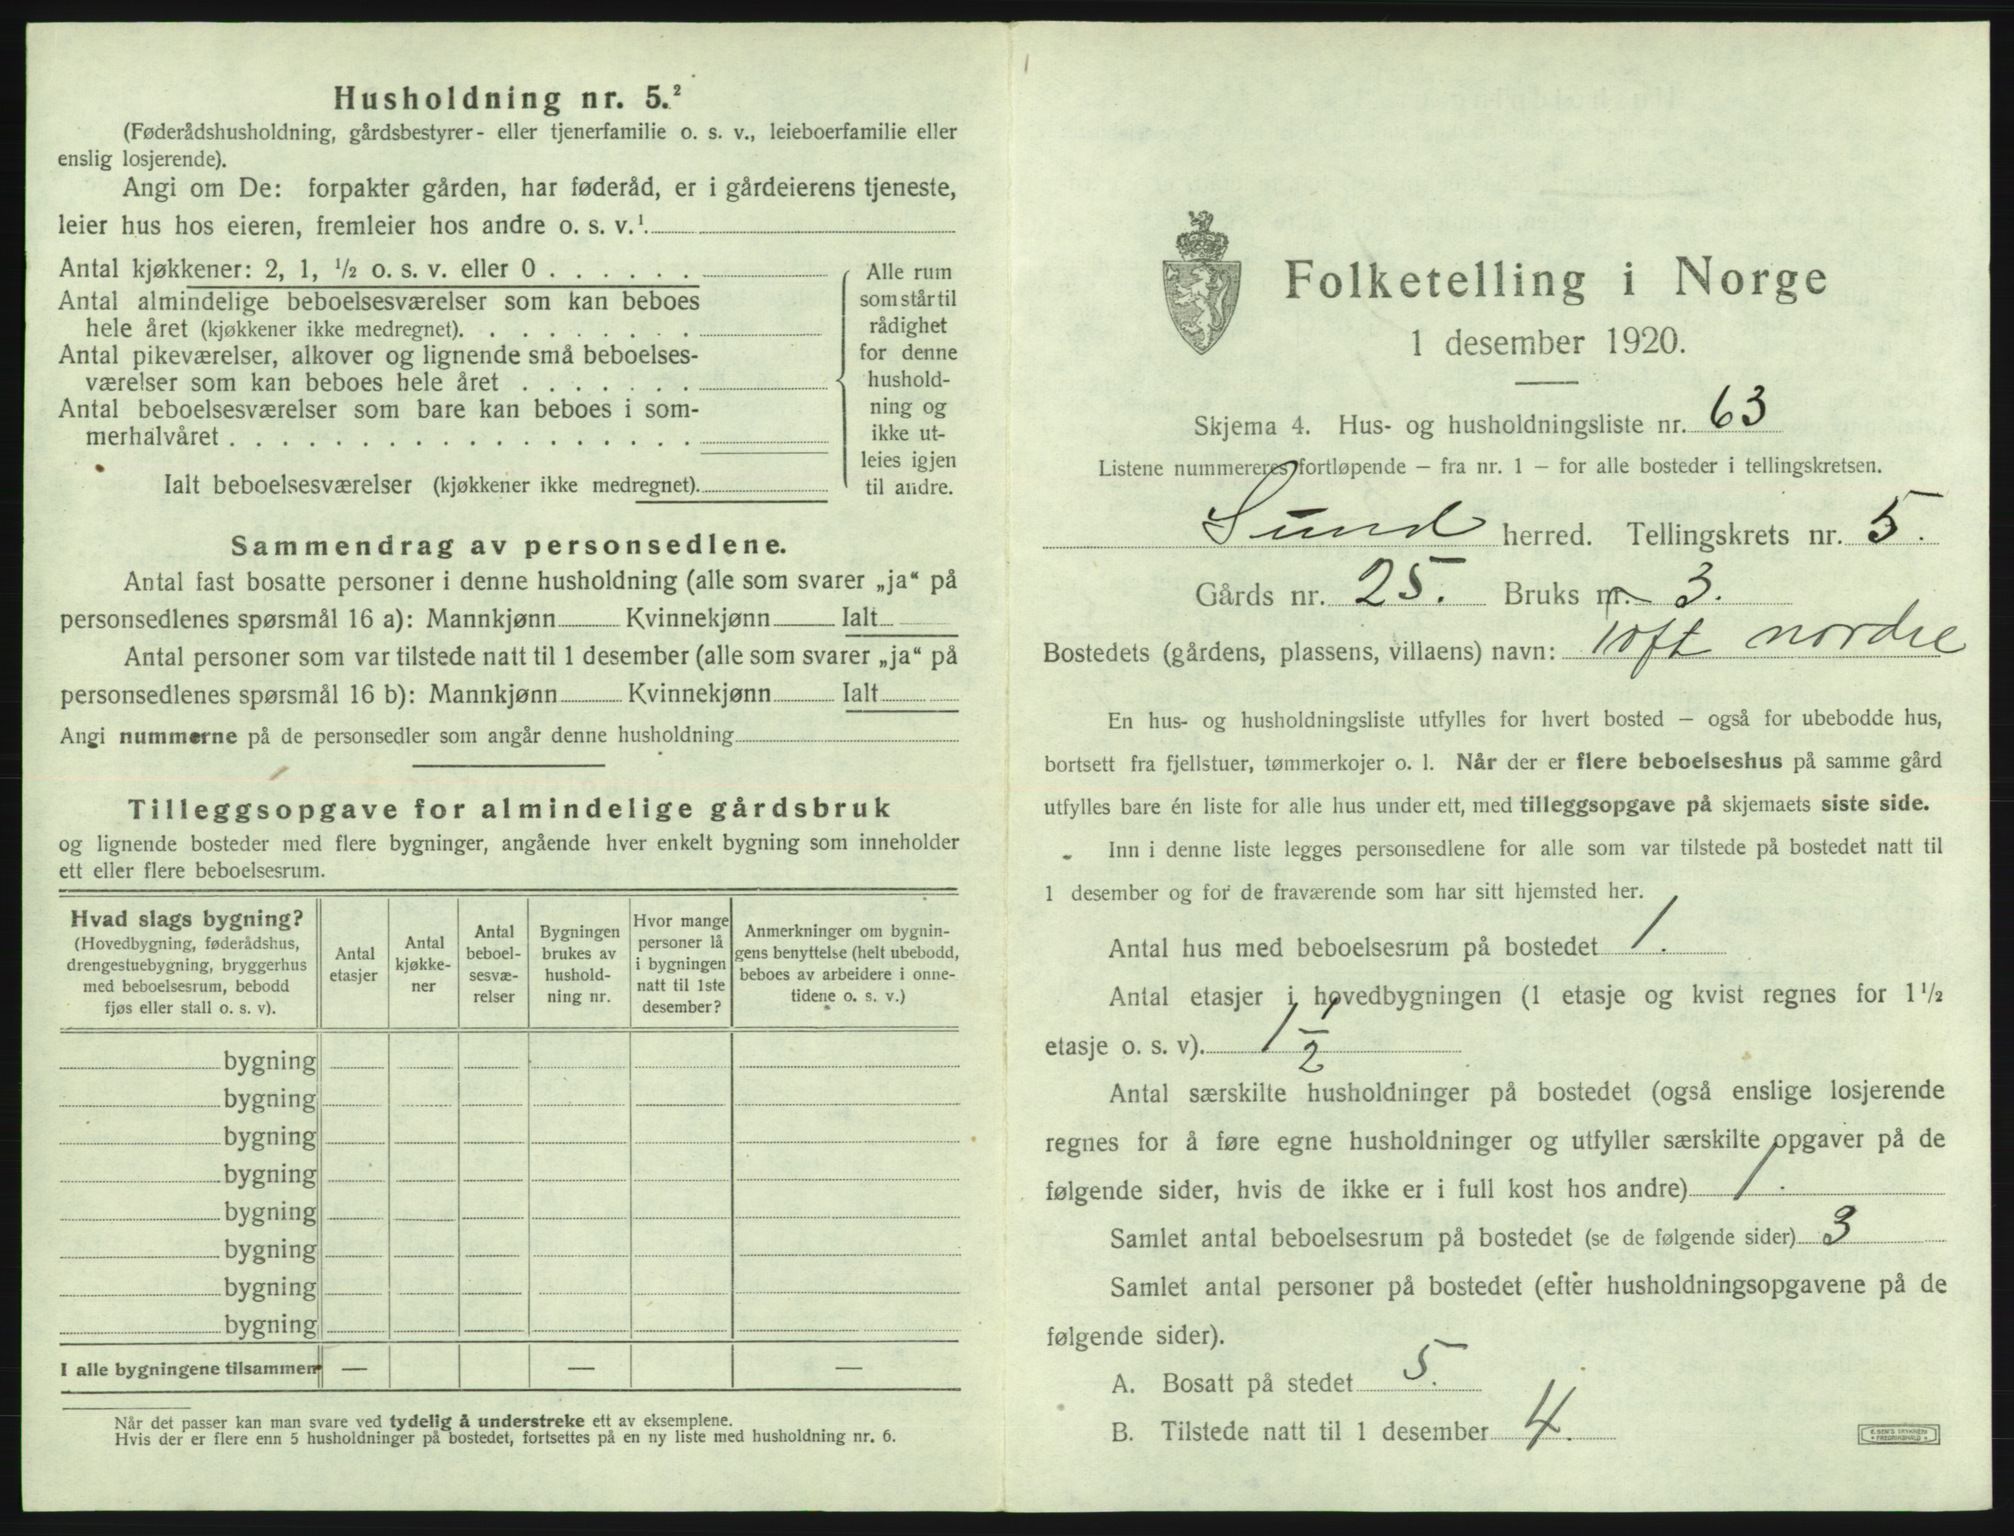 Husholdning nr. 5.²
(Føderådshusholdning, gårdsbestyrer- eller tjenerfamilie o. s. v., leieboerfamilie eller
enslig losjerende).
Angi om De: forpakter gården, har føderåd, er i gårdeierens tjeneste,
leier hus hos eieren, fremleier hos andre o. s. v.¹.
Antal kjøkkener: 2, 1, ½ o. s. v. eller 0 . . . . . .
Antal almindelige beboelsesværelser som kan beboes
hele året (kjøkkener ikke medregnet). . . . . . . . .
Antal pikeværelser, alkover og lignende små beboelses-
værelser som kan beboes hele året . . . . . . .
Antal beboelsesværelser som bare kan beboes i som-
merhalvåret . . . . . . . . . . . . . . . . . .
Ialt beboelsesværelser (kjøkkener ikke medregnet).
Alle rum
som står til
rådighet
for denne
hushold-
ning og
ikke ut-
leies igjen
til andre.
Sammendrag av personsedlene.
Antal fast bosatte personer i denne husholdning (alle som svarer „ja“ på
personsedlenes spørsmål 16 a): Mannkjønn Kvinnekjønn Ialt
Antal personer som var tilstede natt til 1 desember (alle som svarer „ja“ på
personsedlenes spørsmål 16 b): Mannkjønn Kvinnekjønn Ialt
Angi nummerne på de personsedler som angår denne husholdning
Tilleggsopgave for almindelige gårdsbruk
og lignende bosteder med flere bygninger, angående hver enkelt bygning som inneholder
ett eller flere beboelsesrum.
Hvad slags bygning?
(Hovedbygning, føderådshus,
drengestuebygning, bryggerhus
med beboelsesrum, bebodd
fjøs eller stall o. s. v).
Antal
etasjer
Antal
kjøkke-
ner
Antal
beboel-
sesvæ-
relser
Bygningen
brukes av
hushold-
ning nr.
Hvor mange
personer lå
i bygningen
natt til 1ste
desember?
Anmerkninger om bygnin-
gens benyttelse (helt ubebodd,
beboes av arbeidere i onne-
tidene o. s. v.)
bygning
bygning
bygning
bygning
bygning
bygning
bygning
bygning
I alle bygningene tilsammen — — —
Når det passer kan man svare ved tydelig å understreke ett av eksemplene.
Hvis der er flere enn 5 husholdninger på bostedet, fortsettes på en ny liste med husholdning nr. 6.
Folketelling i Norge
1 desember 1920.
Skjema 4. Hus- og husholdningsliste nr. 63
Listene nummereres fortløpende — fra nr. 1 — for alle bosteder i tellingskretsen.
Sund herred. Tellingskrets nr. 5.
Gårds nr. 25. Bruks nr. 3.
Bostedets (gårdens, plassens, villaens) navn: Toft nordre
En hus- og husholdningsliste utfylles for hvert bosted — også for ubebodde hus,
bortsett fra fjellstuer, tømmerkojer o. l. Når der er flere beboelseshus på samme gård
utfylles bare én liste for alle hus under ett, med tilleggsopgave på skjemaets siste side.
Inn i denne liste legges personsedlene for alle som var tilstede på bostedet natt til
1 desember og for de fraværende som har sitt hjemsted her.
Antal hus med beboelsesrum på bostedet 1.
Antal etasjer i hovedbygningen (1 etasje og kvist regnes for 1½
etasje o. s. v). 1 1/2
Antal særskilte husholdninger på bostedet (også enslige losjerende
regnes for å føre egne husholdninger og utfyller særskilte opgaver på de
følgende sider, hvis de ikke er i full kost hos andre) 1.
Samlet antal beboelsesrum på bostedet (se de følgende sider) 3
Samlet antal personer på bostedet (efter husholdningsopgavene på de
følgende sider).
A. Bosatt på stedet 5.
B. Tilstede natt til 1 desember 4.